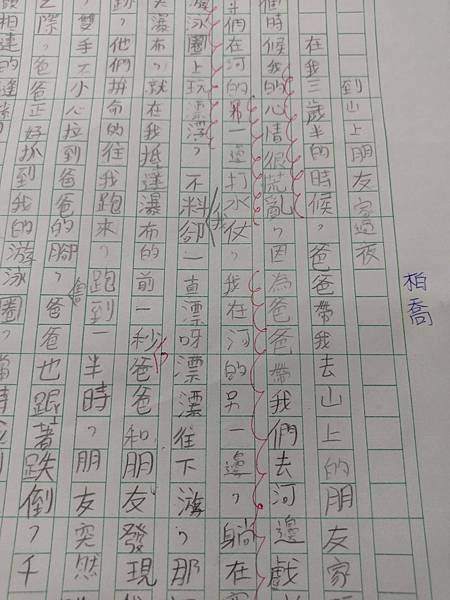 柏喬
到山上朋友家過夜
在我三歲半的時候，爸爸帶我去山上的朋友家
個時候我的心情很慌亂，因為爸爸帶我們去河邊戲
們在河的另一邊打水仗，我在河的另一邊，躺在
泳圈上玩漂漂，不料卻一直漂呀漂漂往下游，那
瀑布，就在我抵達瀑布的前一秒爸爸和朋友發現
，他們拼命的往我跑來，跑到一半時，朋友突然
，雙手不小心拉到爸爸的腳，爸爸也跟著跌倒，千
之際，爸爸正好抓到我的游泳圈
相連的